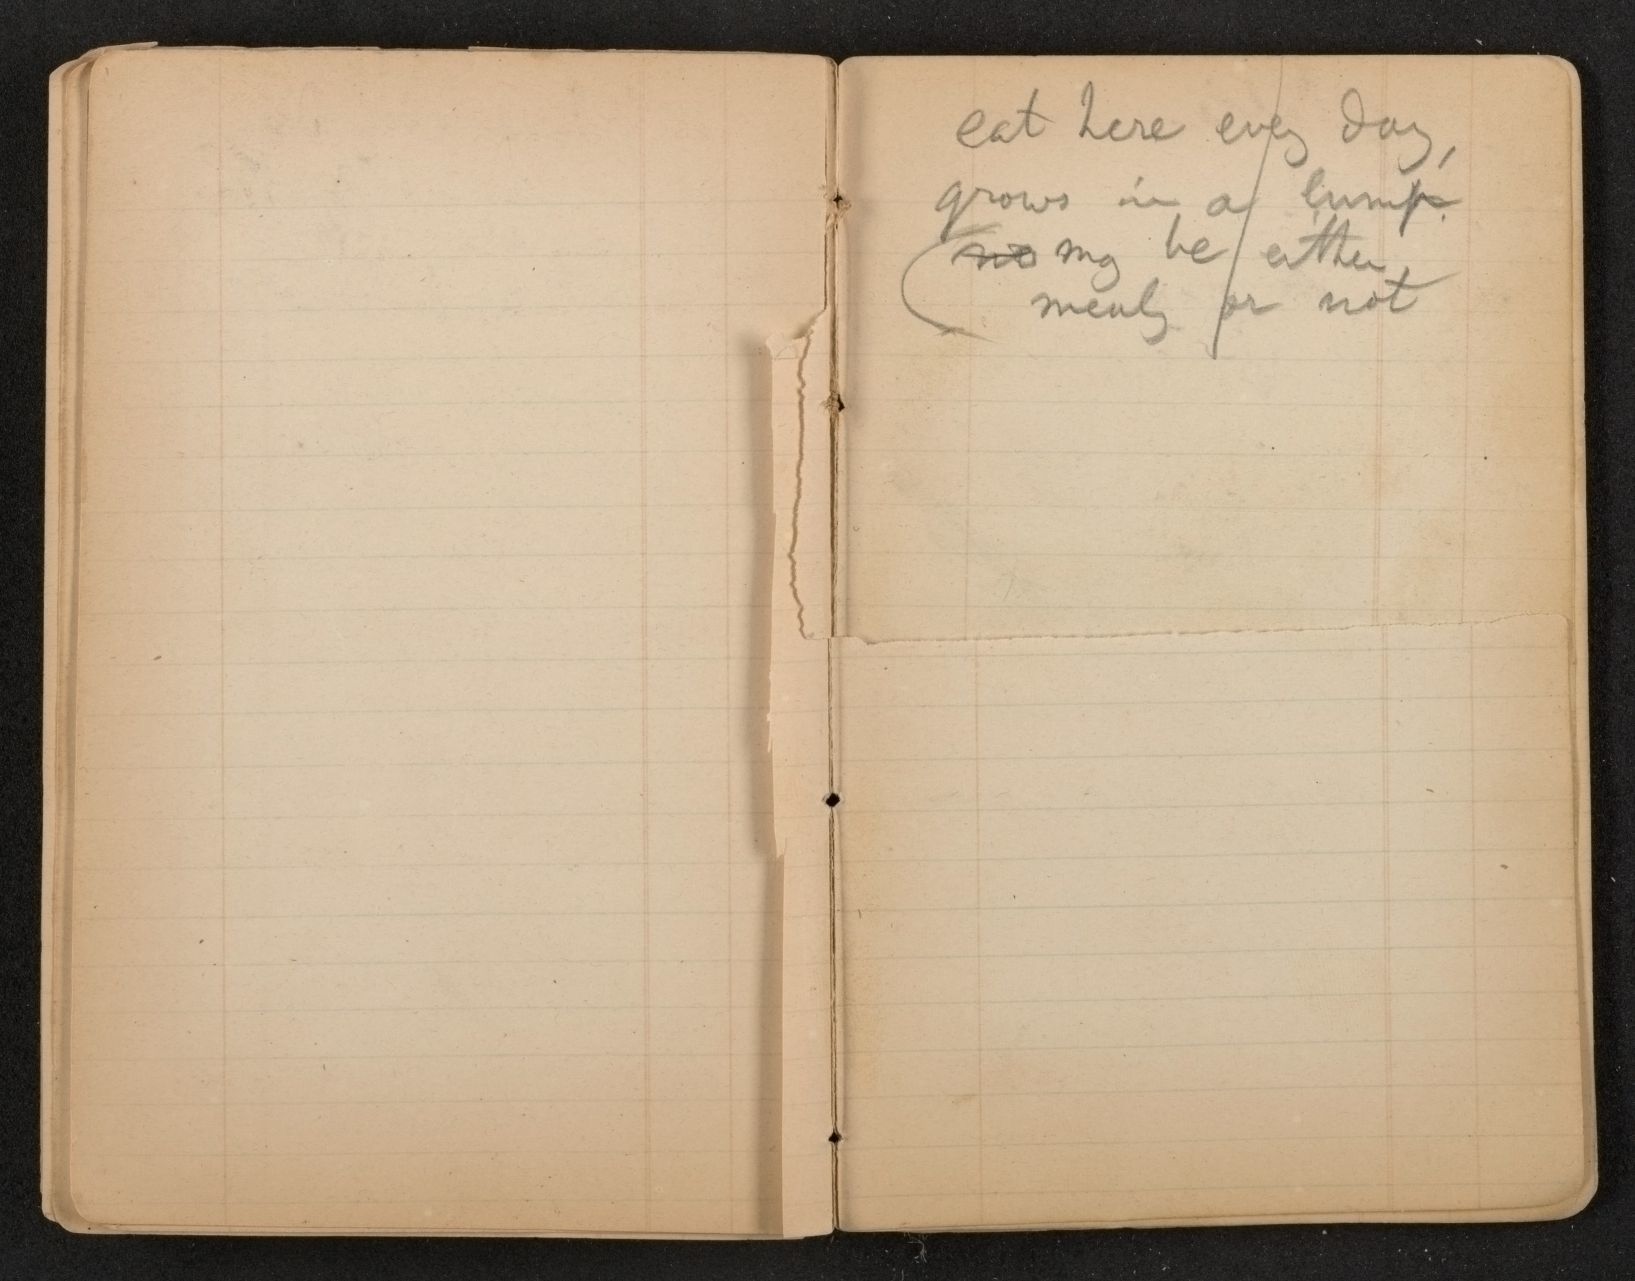 eat here every day,
grows in a lump.
no may be either
mealy or not